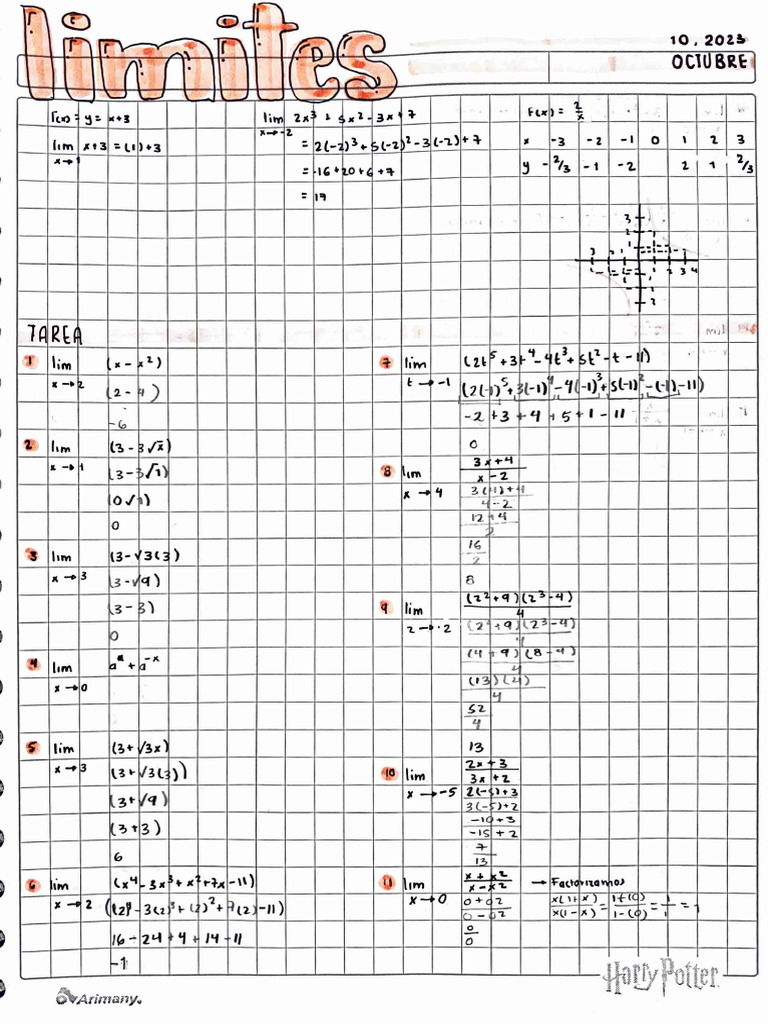 limites
10, 2023
OCTUBRE
f(x) = y = x+3
lim x+3 = (1)+3
x→1
lim 2x³ + 5x² - 3x + 7
x→-2
= 2(-2)³ + 5(-2)² - 3(-2) + 7
= -16+20+6+7
= 17
F(x) = 2/x
x -3 -2 -1 0 1 2 3
y -2/3 -1 -2 2 1 2/3
TAREA
1 lim (x - x²)
x→2 (2 - 4)
-6
2 lim (3 - 3√x)
x→1 (3 - 3√1)
(0√1)
0
3 lim (3-√3(3)
x→3 (3-√9)
(3-3)
0
4 lim aˣ + a⁻ˣ
x→0
5 lim (3+√3x)
x→3 (3+√3(3))
(3+√9)
(3+3)
6
6 lim (x⁴ - 3x³ + x² + 7x - 11)
x→2 ((2)⁴ - 3(2)³ + (2)² + 7(2) - 11)
16 - 24 + 4 + 14 - 11
-1
7 lim (2t⁵ + 3t⁴ - 4t³ + 5t² - t - 11)
t→-1 (2(-1)⁵ + 3(-1)⁴ - 4(-1)³ + 5(-1)² - (-1) - 11)
-2 + 3 + 4 + 5 + 1 - 11
0
8 lim 3x+4
x→4 x-2
4-2
12+4
2
16
2
8
9 lim (2²+9)(2³-4)
2→2 4
(2²+9)(2³-4)
4
(4+9)(8-4)
4
(13)(4)
4
52
4
13
10 lim 2x+3
x→-5 3x+2
2(-5)+3
3(-5)+2
-10+3
-15+2
7
13
11 lim x+x²
x→0 x-x²
0+0²
0-0²
0
0
→ Factorizamos
x(1+x)/x(1-x) = 1+(0)/1-(0) = 1/1 = 1
Arimany.
Harry Potter